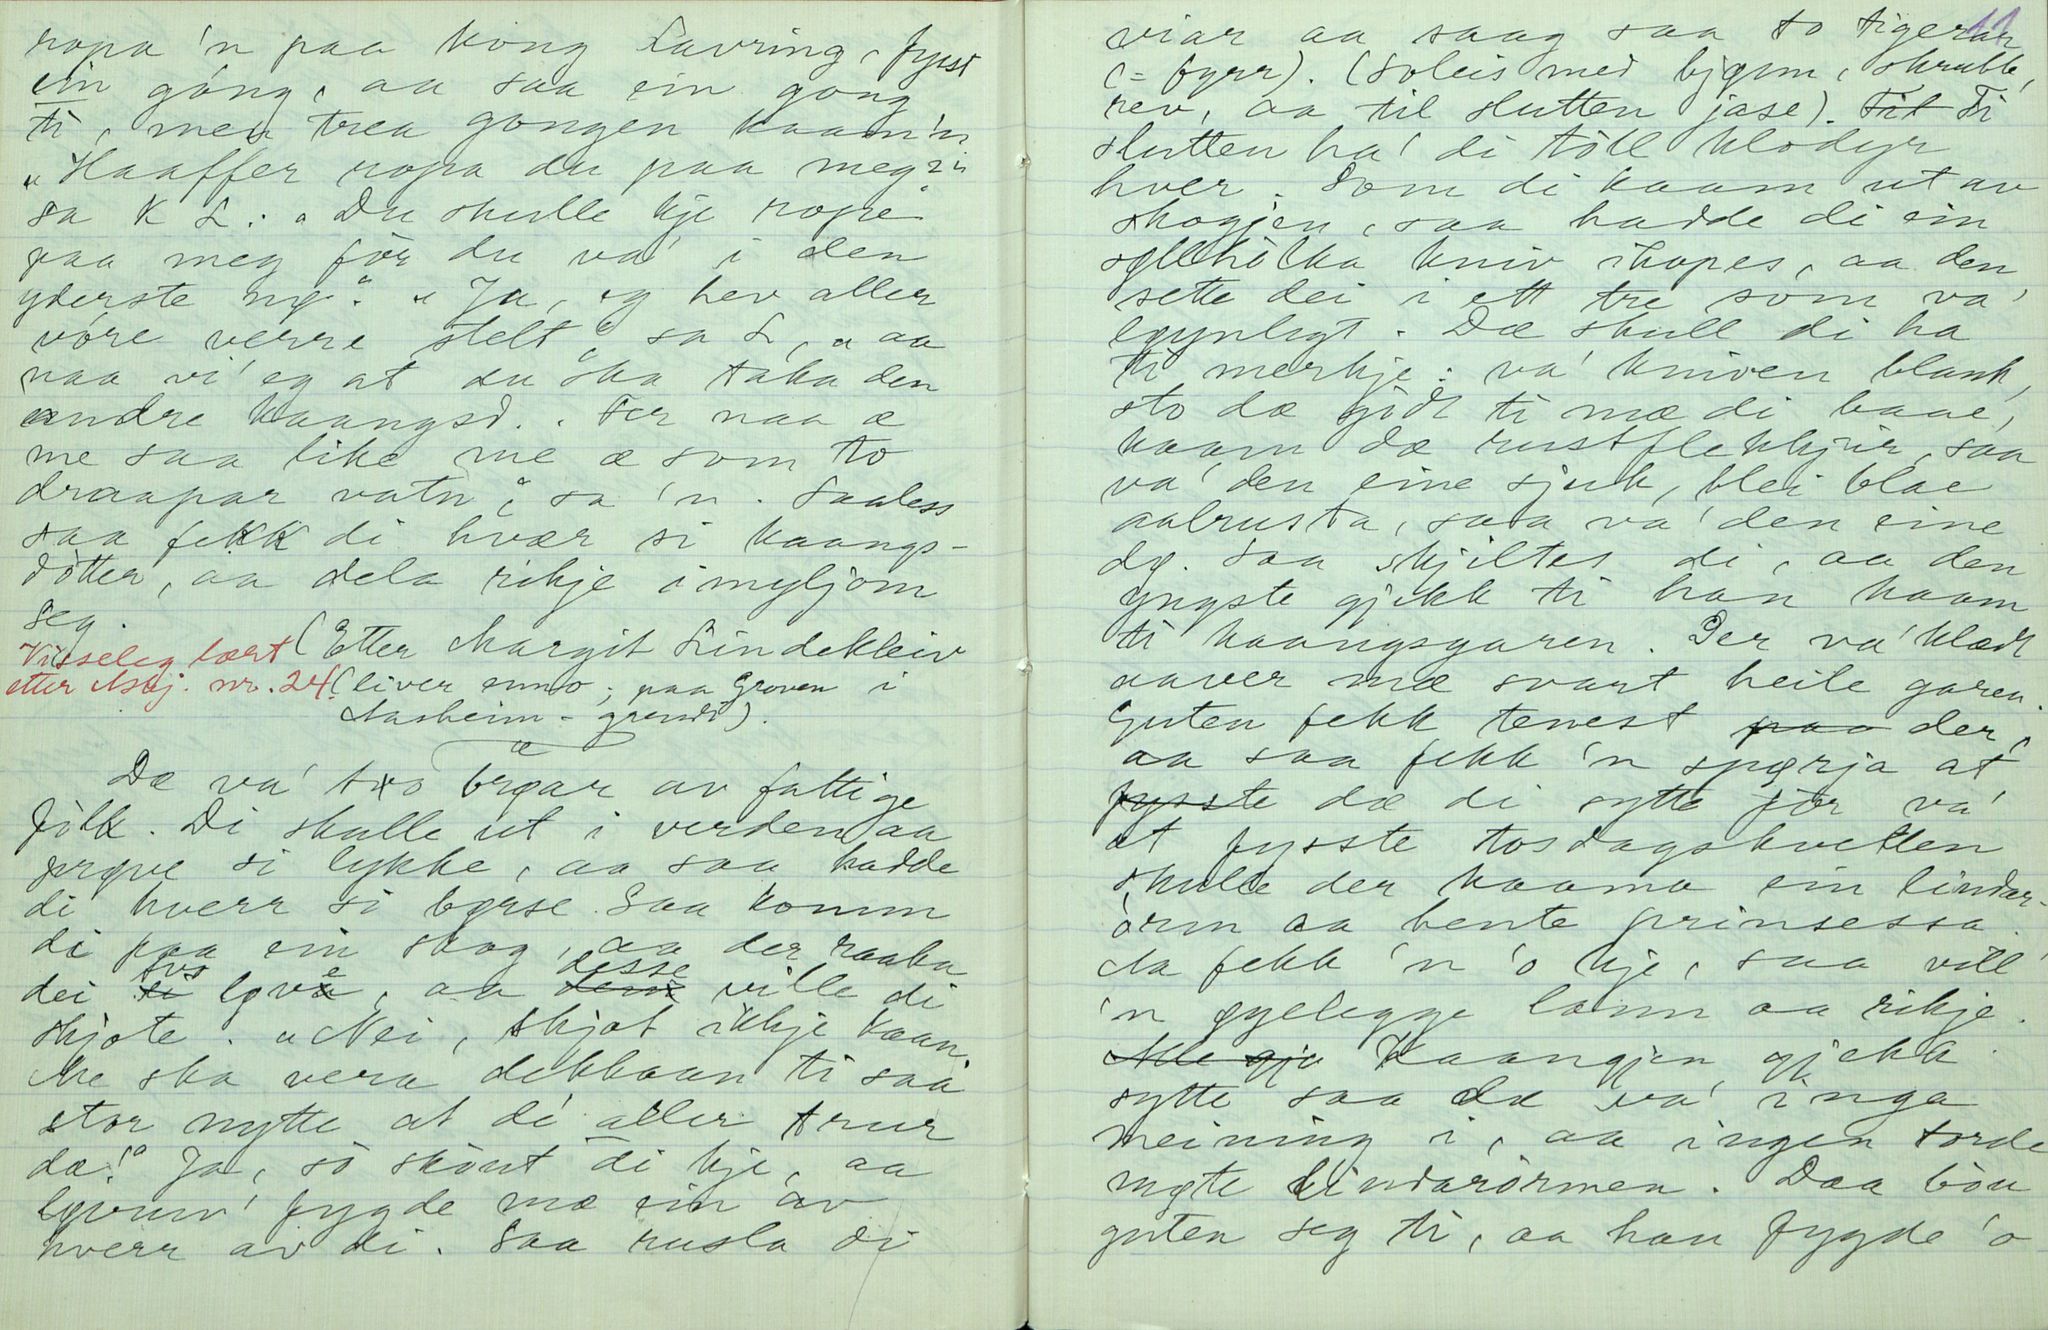 ropa 'n paa kong Lavring, fysst
ein gong, aa saa ein gong
ti, men trea gongen kaam'n.
"Haaffer ropa du paa meg?"
sa K L. "Du skulle kje rope
paa meg för du va' i den
yderste nø." "Ja, eg hev aller
vóre verre stelt", sa L, "aa
naa vi' eg at du ska taka den
andre kaangsd. . Fer naa æ
me saa like me æ som to
draapar vatn", sa 'n. Saaless
saa fekk di hvær si kaangs-
dotter, aa dela rikje imyljom
seg.
(Etter Margit Lindekleiv
(liver enno; paa Groven i
Aasheim-grendi).
Visseleg lært
etter Asbj. nr. 24
Dæ va' two brøar av fattige
fölk. Di skulle ut i verden aa
prøve si lykke, aa saa hadde
di hverr si børse. Saa komm
di paa ein skog, aa der raaka
dei tvo løve, aa desse ville di
skjote. "Nei, skjot ikkje kaan.
Me ska vera dekkaan ti saa
stor nytte at di aller trur
dæ!" Ja, so skout di kje, aa
løvun' fygde mæ ein av
hverr av di. Saa rusla di
11
viar aa saag saa to tigerar
(= fyrr). (Soleis med bjønn, skrubb,
rev, aa til slutten jase). Ti
slutten ha' di töll klodyr
hver. Som di kaam ut av
skogjen, saa hadde di ein
syllhölka kniv ihopes, aa den
sette dei i ett tre som va'
løynligt. Dæ skull di ha
ti merkje: va' kniven blank,
sto dæ godt ti mæ di baae,
kaam dæ rustflekkjir, saa
va' den eine sjuk, blei blae
aalrusta, saa va' den eine
dø. Saa skjiltes di, aa den
yngste gjekk ti han kaam
ti kaangsgaren. Der va' klædt
aaver mæ svart heile garen.
Guten fekk tenest der,
aa saa fekk 'n spørja at
dæ di sytte för va'
at fysste tosdagskvellen
skulle der kaama ein lindar-
orm aa hente prinsessa.
Aa fekk 'n 'o kje, saa vill'
'n øyelegge lann aa rikje.
Kaangjen gjekk
sytte saa dæ va' inga
meining i, aa ingen torde
møte lindarormen. Daa böu
guten seg ti, aa han fygde 'o